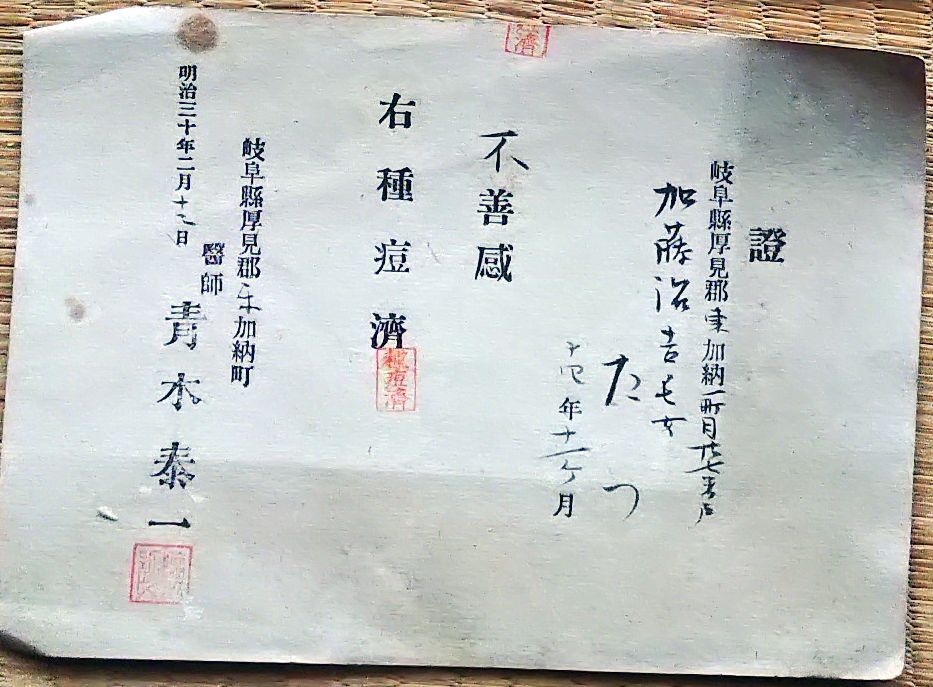 證
岐阜縣厚見郡東加納町
加藤治吉長女
たつ
十四年十一ヶ月
不善感
右種痘濟
種痘濟
濟
岐阜縣厚見郡東加納町
明治三十年二月十三日
醫師 青木泰一